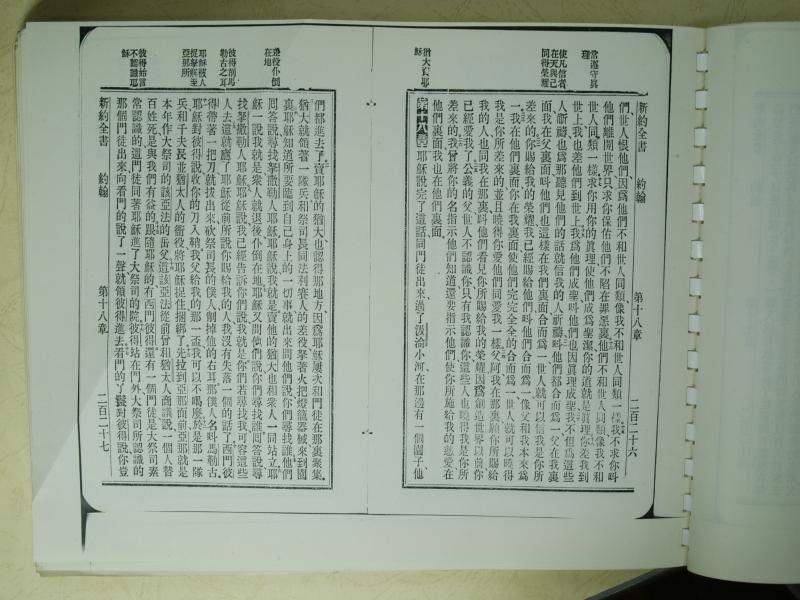 新約全書　約翰　第十八章　二百二十六
常遵守眞理
使凡信者在天與己同得榮耀
猶大賣耶穌
們世人恨他們因爲他們不和世人同類像我不和世人同類一樣我不求你叫
他們離開世界只求你保佑他們不陷在罪惡裏他們不和世人同類像我不和
世人同類一樣求你用你的眞理使他們成爲聖潔你的道就是眞理你差我到
世上我也差他們到世上我爲他們成聖叫他們也因眞理成聖我不但爲這些
人祈禱也爲那聽見他們的話就信我的人祈禱叫他們都合而爲一父在我裏
面我在父裏面叫他們也這樣在我們裏面合而爲一世人就可以信我是你所
差來的你賜給我的榮耀我已經賜給他們叫他們合而爲一像父和我本來爲
一我在他們裏面你在我裏面使他們完完全全的合而爲一世人就可以曉得
我是你所差來的並且曉得你愛他們同愛我一樣父阿我在那裏願你所賜給
我的人也同我在那裏叫他們看見你所賜給我的榮耀因爲創造世界以前你
已經愛我了公義的父世人不認識你只有我認識你這些人也曉得我是你所
差來的我曾將你的名指示他們知道還要指示他們使你所施給我的慈愛在
他們裏面我也在他們裏面
第十八章耶穌說完了這話同門徒出來過了汲淪小河在那邊有一個園子他
們都進去了賣耶穌的猶大也認得那地方因爲耶穌屢次和門徒在那裏聚集
猶大就領著一隊兵和祭司長同法利賽人的差役拏著火把燈籠器械來到園
裏耶穌知道所要臨到自己身上的一切事就出來問他們說你們尋找誰他們
回答說尋找拏撒勒人耶穌耶穌說我就是賣他的猶大也和衆人一同站立耶
穌一說我就是衆人就退後仆倒在地耶穌又問他們說你們尋找誰回答說尋
找拏撒勒人耶穌耶穌說我已經告訴你們說我就是你們若尋找我可容這些
人去這就應了耶穌從前所說你賜給我的人我沒有失落一個的話了西門彼
得帶著一把刀就拔出來砍祭司長的僕人削掉他的右耳那僕人名叫馬勒古
耶穌對彼得說收你的刀入鞘我父給我的那一盃我可以不喝麼於是那一隊
兵和千夫長並猶太人的衙役將耶穌捉住捆綁了先拉到亞那面前亞那就是
本年作大祭司的該亞法的岳父這該亞法從前曾和猶太人商議說一個人替
百姓死是與我們有益的跟隨耶穌的有西門彼得還有一個門徒是大祭司素
常認識的這門徒同著耶穌進了大祭司的院彼得站在門外大祭司所認識的
那個門徒出來向看門的說了一聲就領彼得進去看門的丫鬟對彼得說你豈
差役仆倒在地
彼得削馬勒古之耳
耶穌被人捉拏解至亞那所
彼得始言不認識耶穌
新約全書　約翰　第十八章　二百二十七